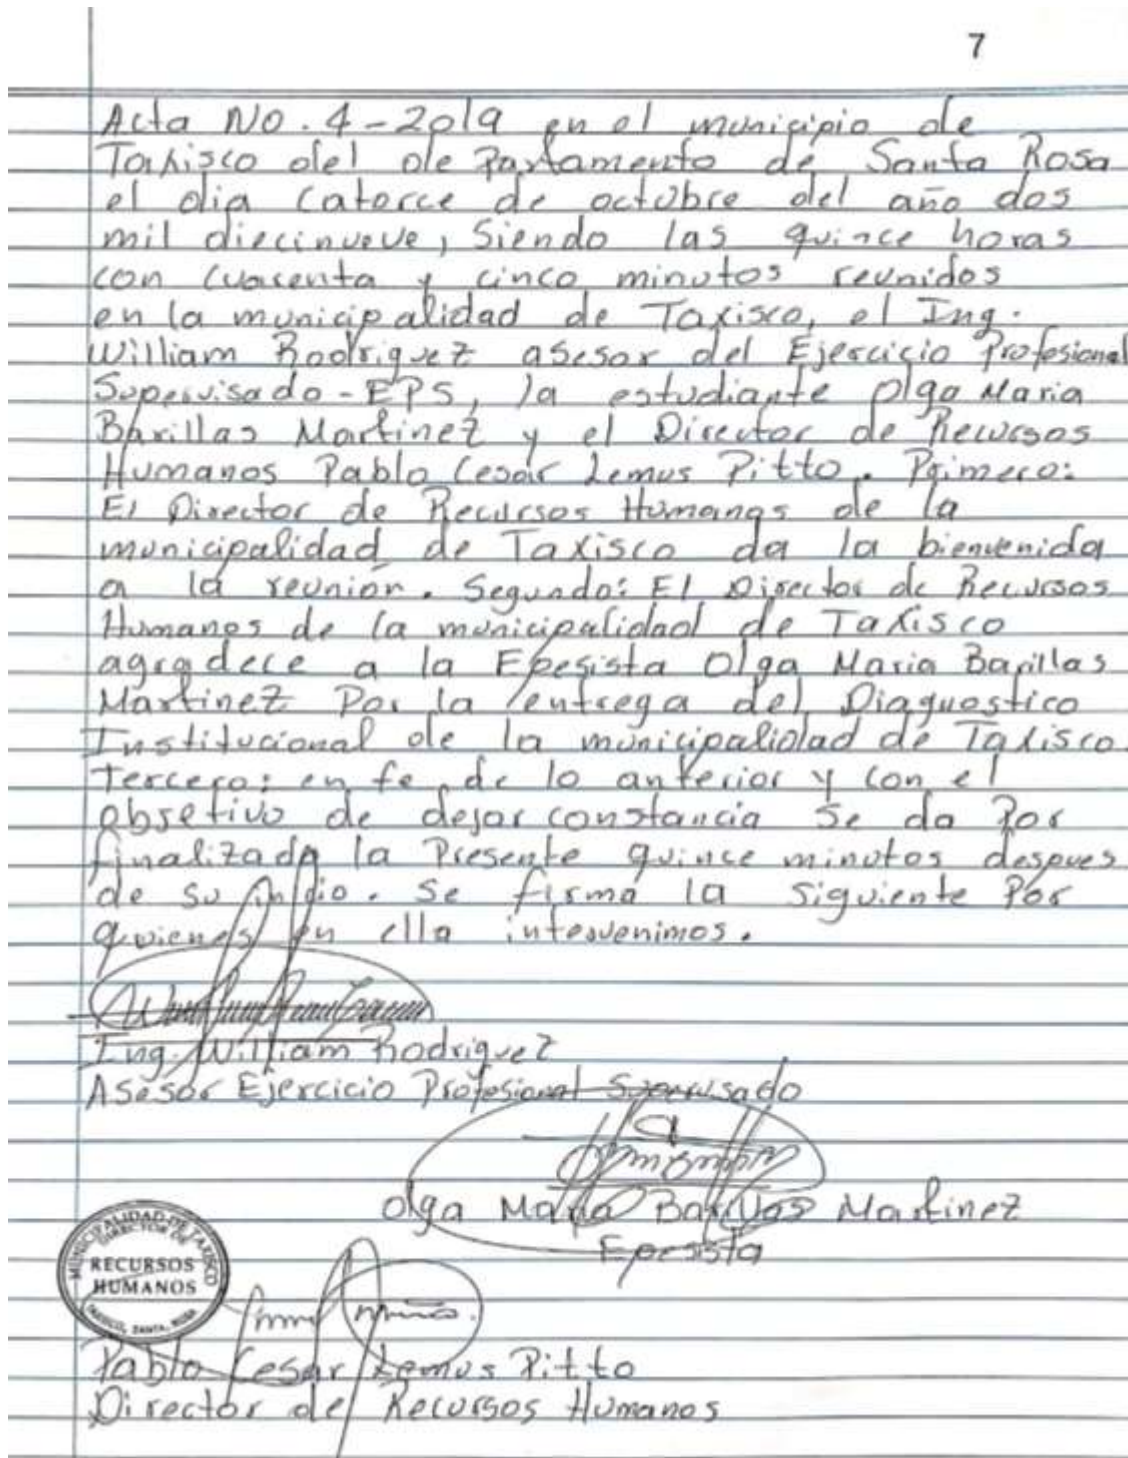 7
Acta No. 4-2019 en el municipio de
Taxisco del departamento de Santa Rosa
el dia catorce de octubre del año dos
mil diecinueve, siendo las quince horas
con cuarenta y cinco minutos reunidos
en la municipalidad de Taxisco, el Ing.
William Rodriguez asesor del Ejercicio Profesional
Supervisado - EPS, la estudiante Olga Maria
Barillas Martinez y el Director de Recursos
Humanos Pablo Cesar Lemus Pitto. Primero:
El Director de Recursos Humanos de la
municipalidad de Taxisco da la bienvenida
a la reunión. Segundo: El Director de Recursos
Humanos de la municipalidad de Taxisco
agradece a la Epesista Olga Maria Barillas
Martinez Por la entrega del Diagnostico
Institucional de la municipalidad de Taxisco.
Tercero: en fe de lo anterior y con el
obsetivo de dejar constancia se da Por
finalizada la Presente quince minutos despues
de su inicio. Se firma la siguiente Por
quienes en ella intervenimos.
Ing. William Rodriguez
Asesor Ejercicio Profesional Supervisado
Olga Maria Barillas Martinez
Epesista
MUNICIPALIDAD DE TAXISCO
DIRECTOR DE
RECURSOS
HUMANOS
TAXISCO, SANTA ROSA
Pablo Cesar Lemus Pitto
Director de Recursos Humanos